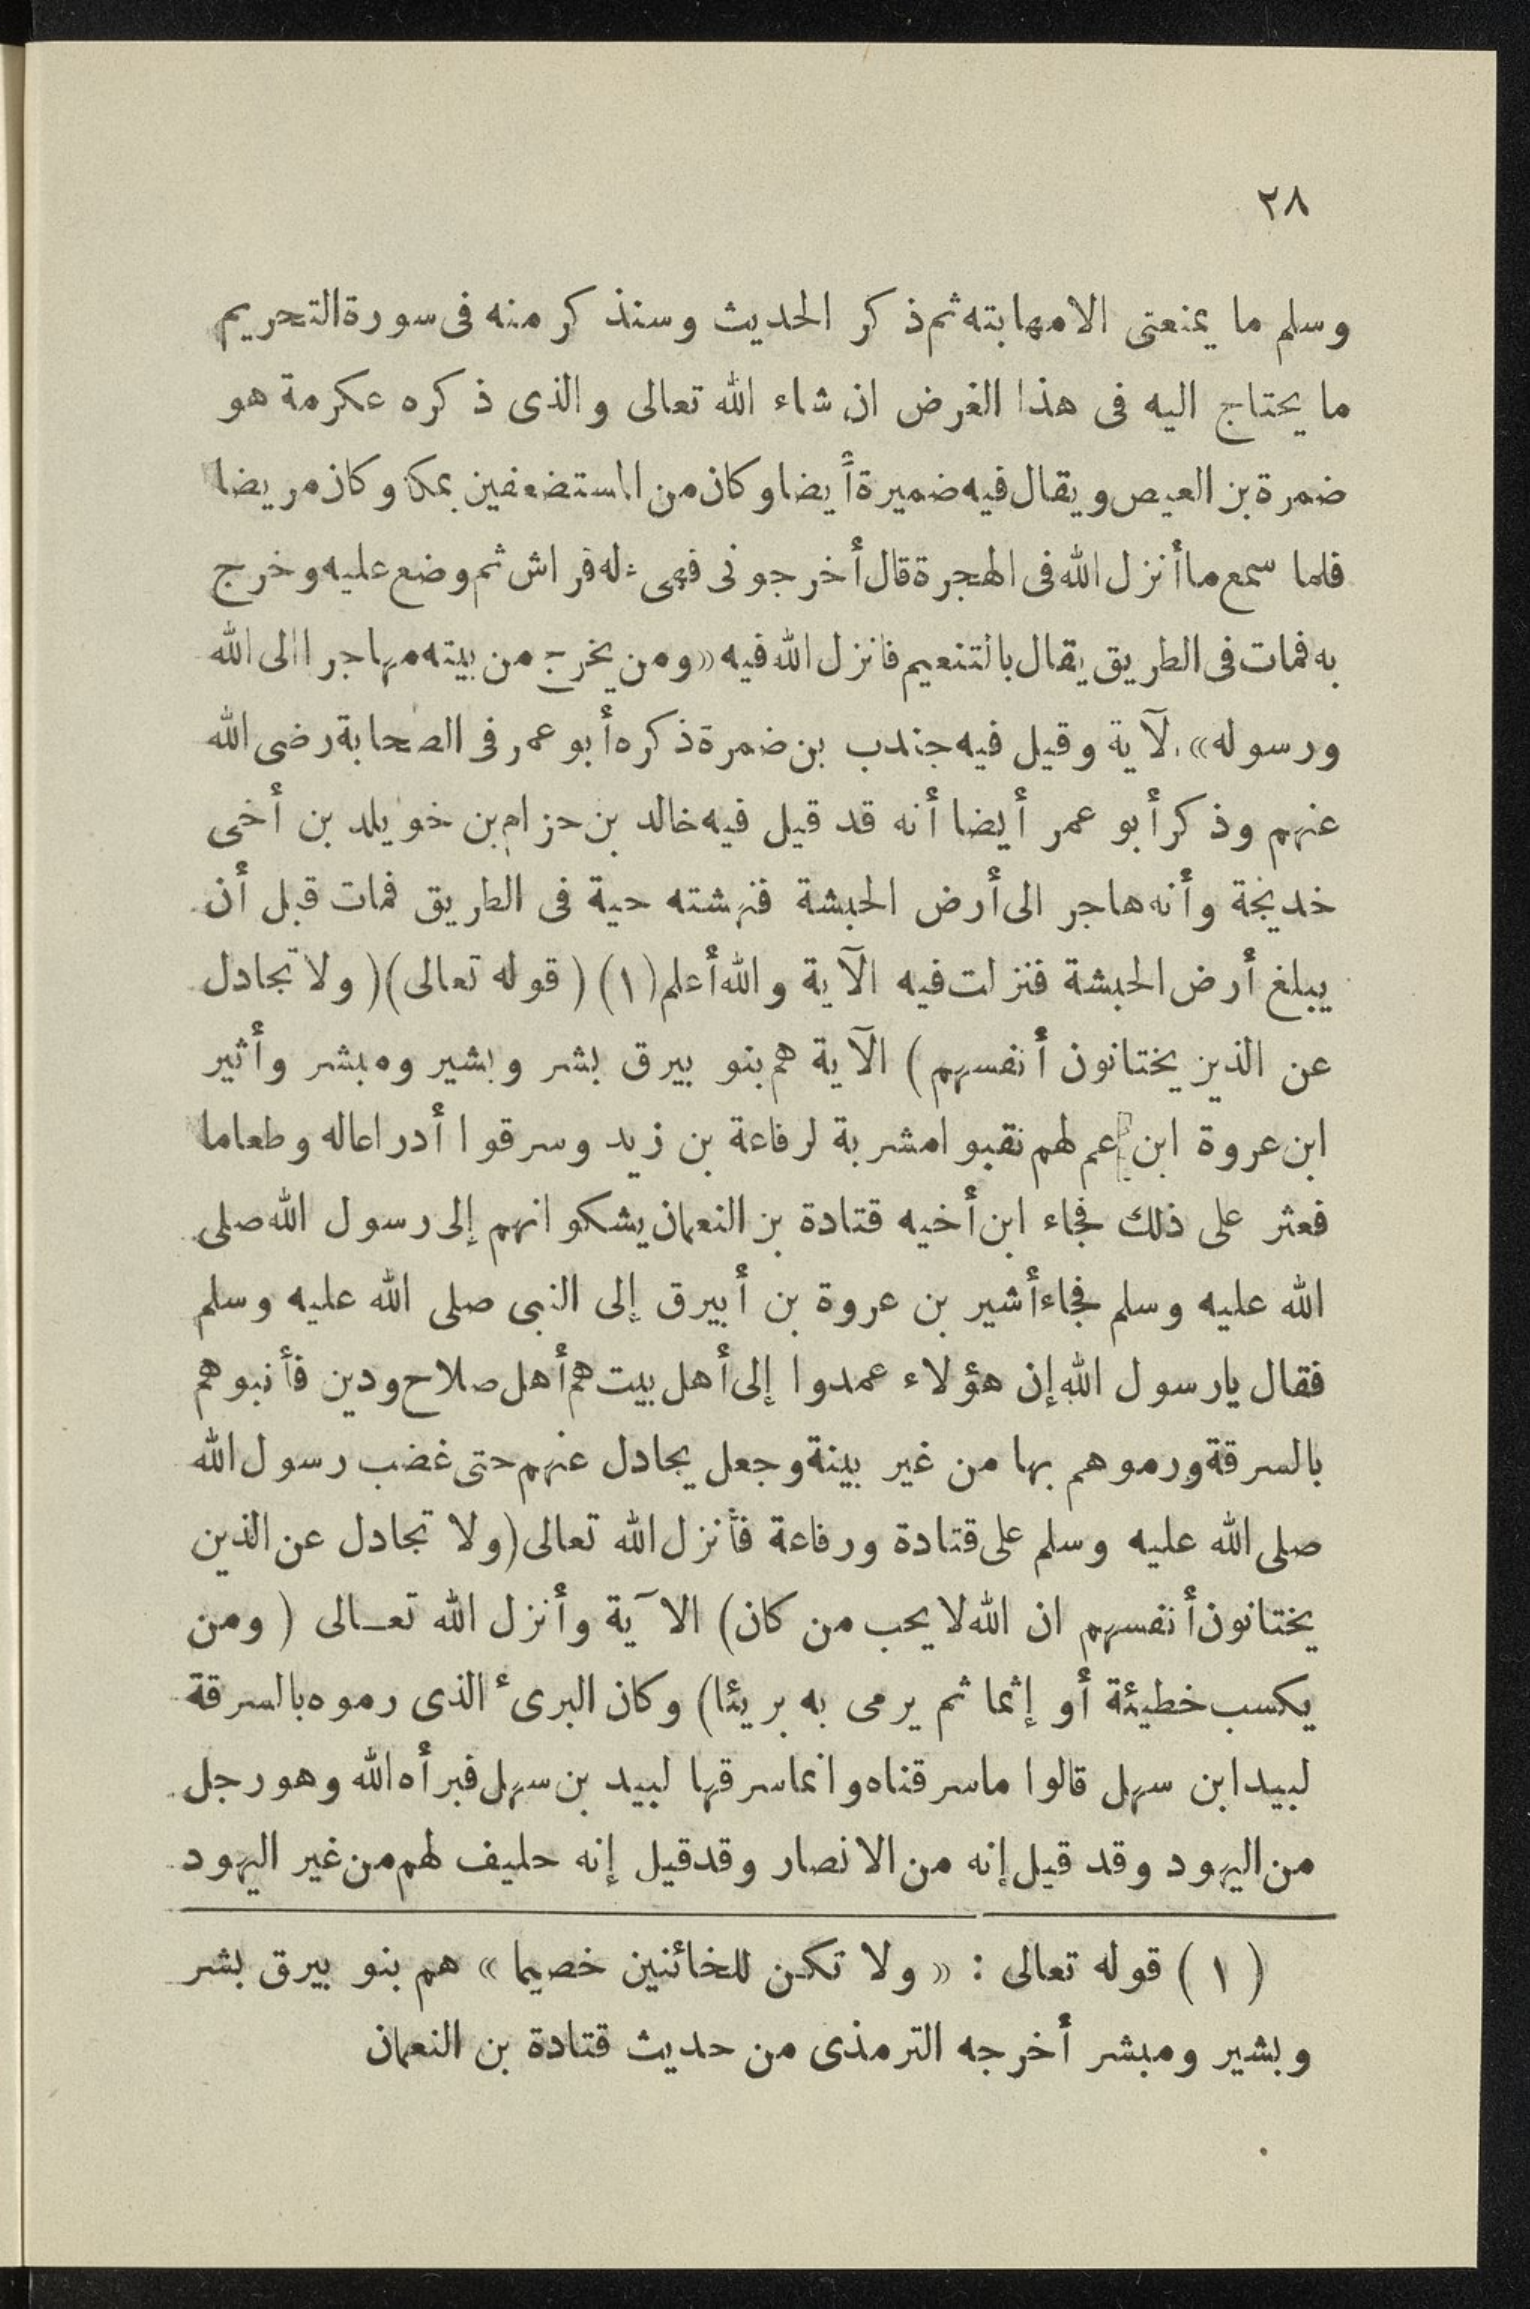 ٢٨
وسلم ما يمنعنى الامهابته ثم ذكر الحديث وسنذكر منه فى سورة التحريم
ما يحتاج اليه فى هذا الغرض ان شاء الله تعالى والذى ذكره عكرمة هو
ضمرة بن العيص ويقال فيه ضميرة أيضا وكان من المستضعفين بمكة وكان مريضا
فلما سمع ما أنزل الله فى الهجرة قال أخرجونى فهىء له فراش ثم وضع عليه وخرج
به فمات فى الطريق يقال بالتنعيم فانزل الله فيه «ومن يخرج من بيته مهاجرا الى الله
ورسوله» الآية وقيل فيه جندب بن ضمرة ذكره أبو عمر فى الصحابة رضى الله
عنهم وذكر أبو عمر أيضا أنه قد قيل فيه خالد بن حزام بن خويلد بن أخى
خديجة وأنه هاجر الى أرض الحبشة فنهشته حية فى الطريق فمات قبل أن
يبلغ أرض الحبشة فنزلت فيه الآية والله أعلم (١) ( قوله تعالى )( ولا تجادل
عن الذين يختانون أنفسهم ) الآية هم بنو بيرق بشر وبشير ومبشر وأثير
ابن عروة ابن عم لهم نقبوا مشربة لرفاعة بن زيد وسرقوا أدراعاله وطعاما
فعثر على ذلك فجاء ابن أخيه قتادة بن النعمان يشكوانهم إلى رسول الله صلى
الله عليه وسلم فجاء أشير بن عروة بن أبيرق إلى النبى صلى الله عليه وسلم
فقال يارسول الله إن هؤلاء عمدوا إلى أهل بيت هم أهل صلاح ودين فأنبوهم
بالسرقة ورموهم بها من غير بينة وجعل يجادل عنهم حتى غضب رسول الله
صلى الله عليه وسلم على قتادة ورفاعة فأنزل الله تعالى (ولا تجادل عن الذين
يختانون أنفسهم ان الله لا يحب من كان) الآية وأنزل الله تعـالى ( ومن
يكسب خطيئة أو إثما ثم يرمى به بريئا) وكان البرىء الذى رموه بالسرقة
لبيد ابن سهل قالوا ماسرقناه وانماسرقها لبيد بن سهل فبرأه الله وهو رجل
من اليهود وقد قيل إنه من الانصار وقدقيل إنه حليف لهم من غير اليهود
( ١ ) قوله تعالى : « ولا تكن للخائنين خصيما » هم بنو بيرق بشر
وبشير ومبشر أخرجه الترمذى من حديث قتادة بن النعمان